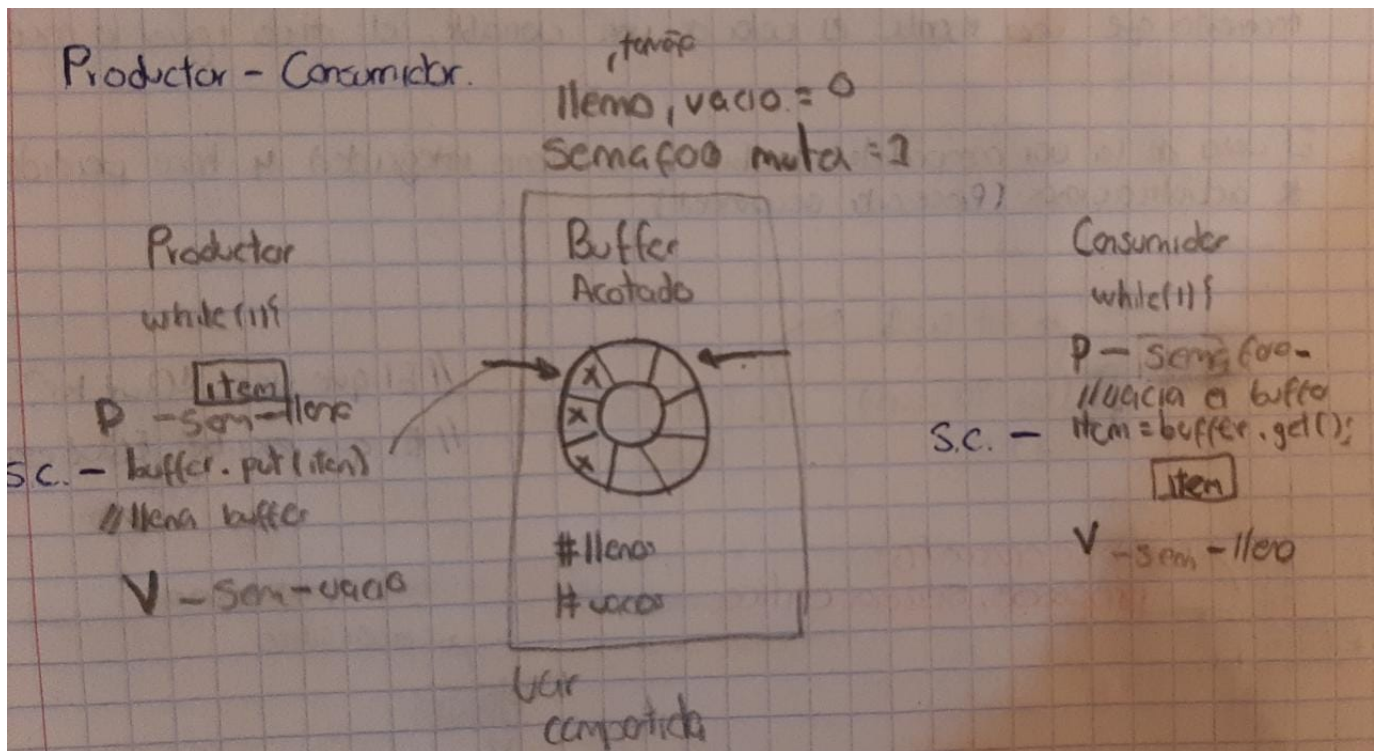 Productor - Consumidor.
, tamaño
lleno, vacio = 0
Semaforo mutex = 1
Productor
while(1){
item
P - sem - lleno
S.C. - buffer.put(item)
// llena buffer
V - sem - vacio
Buffer
Acotado
x
x
x
# llenos
# vacios
Var
compartida
Consumidor
while(1){
P - semaforo -
// vacia el buffer
S.C. - item = buffer.get();
item
V - sem - lleno